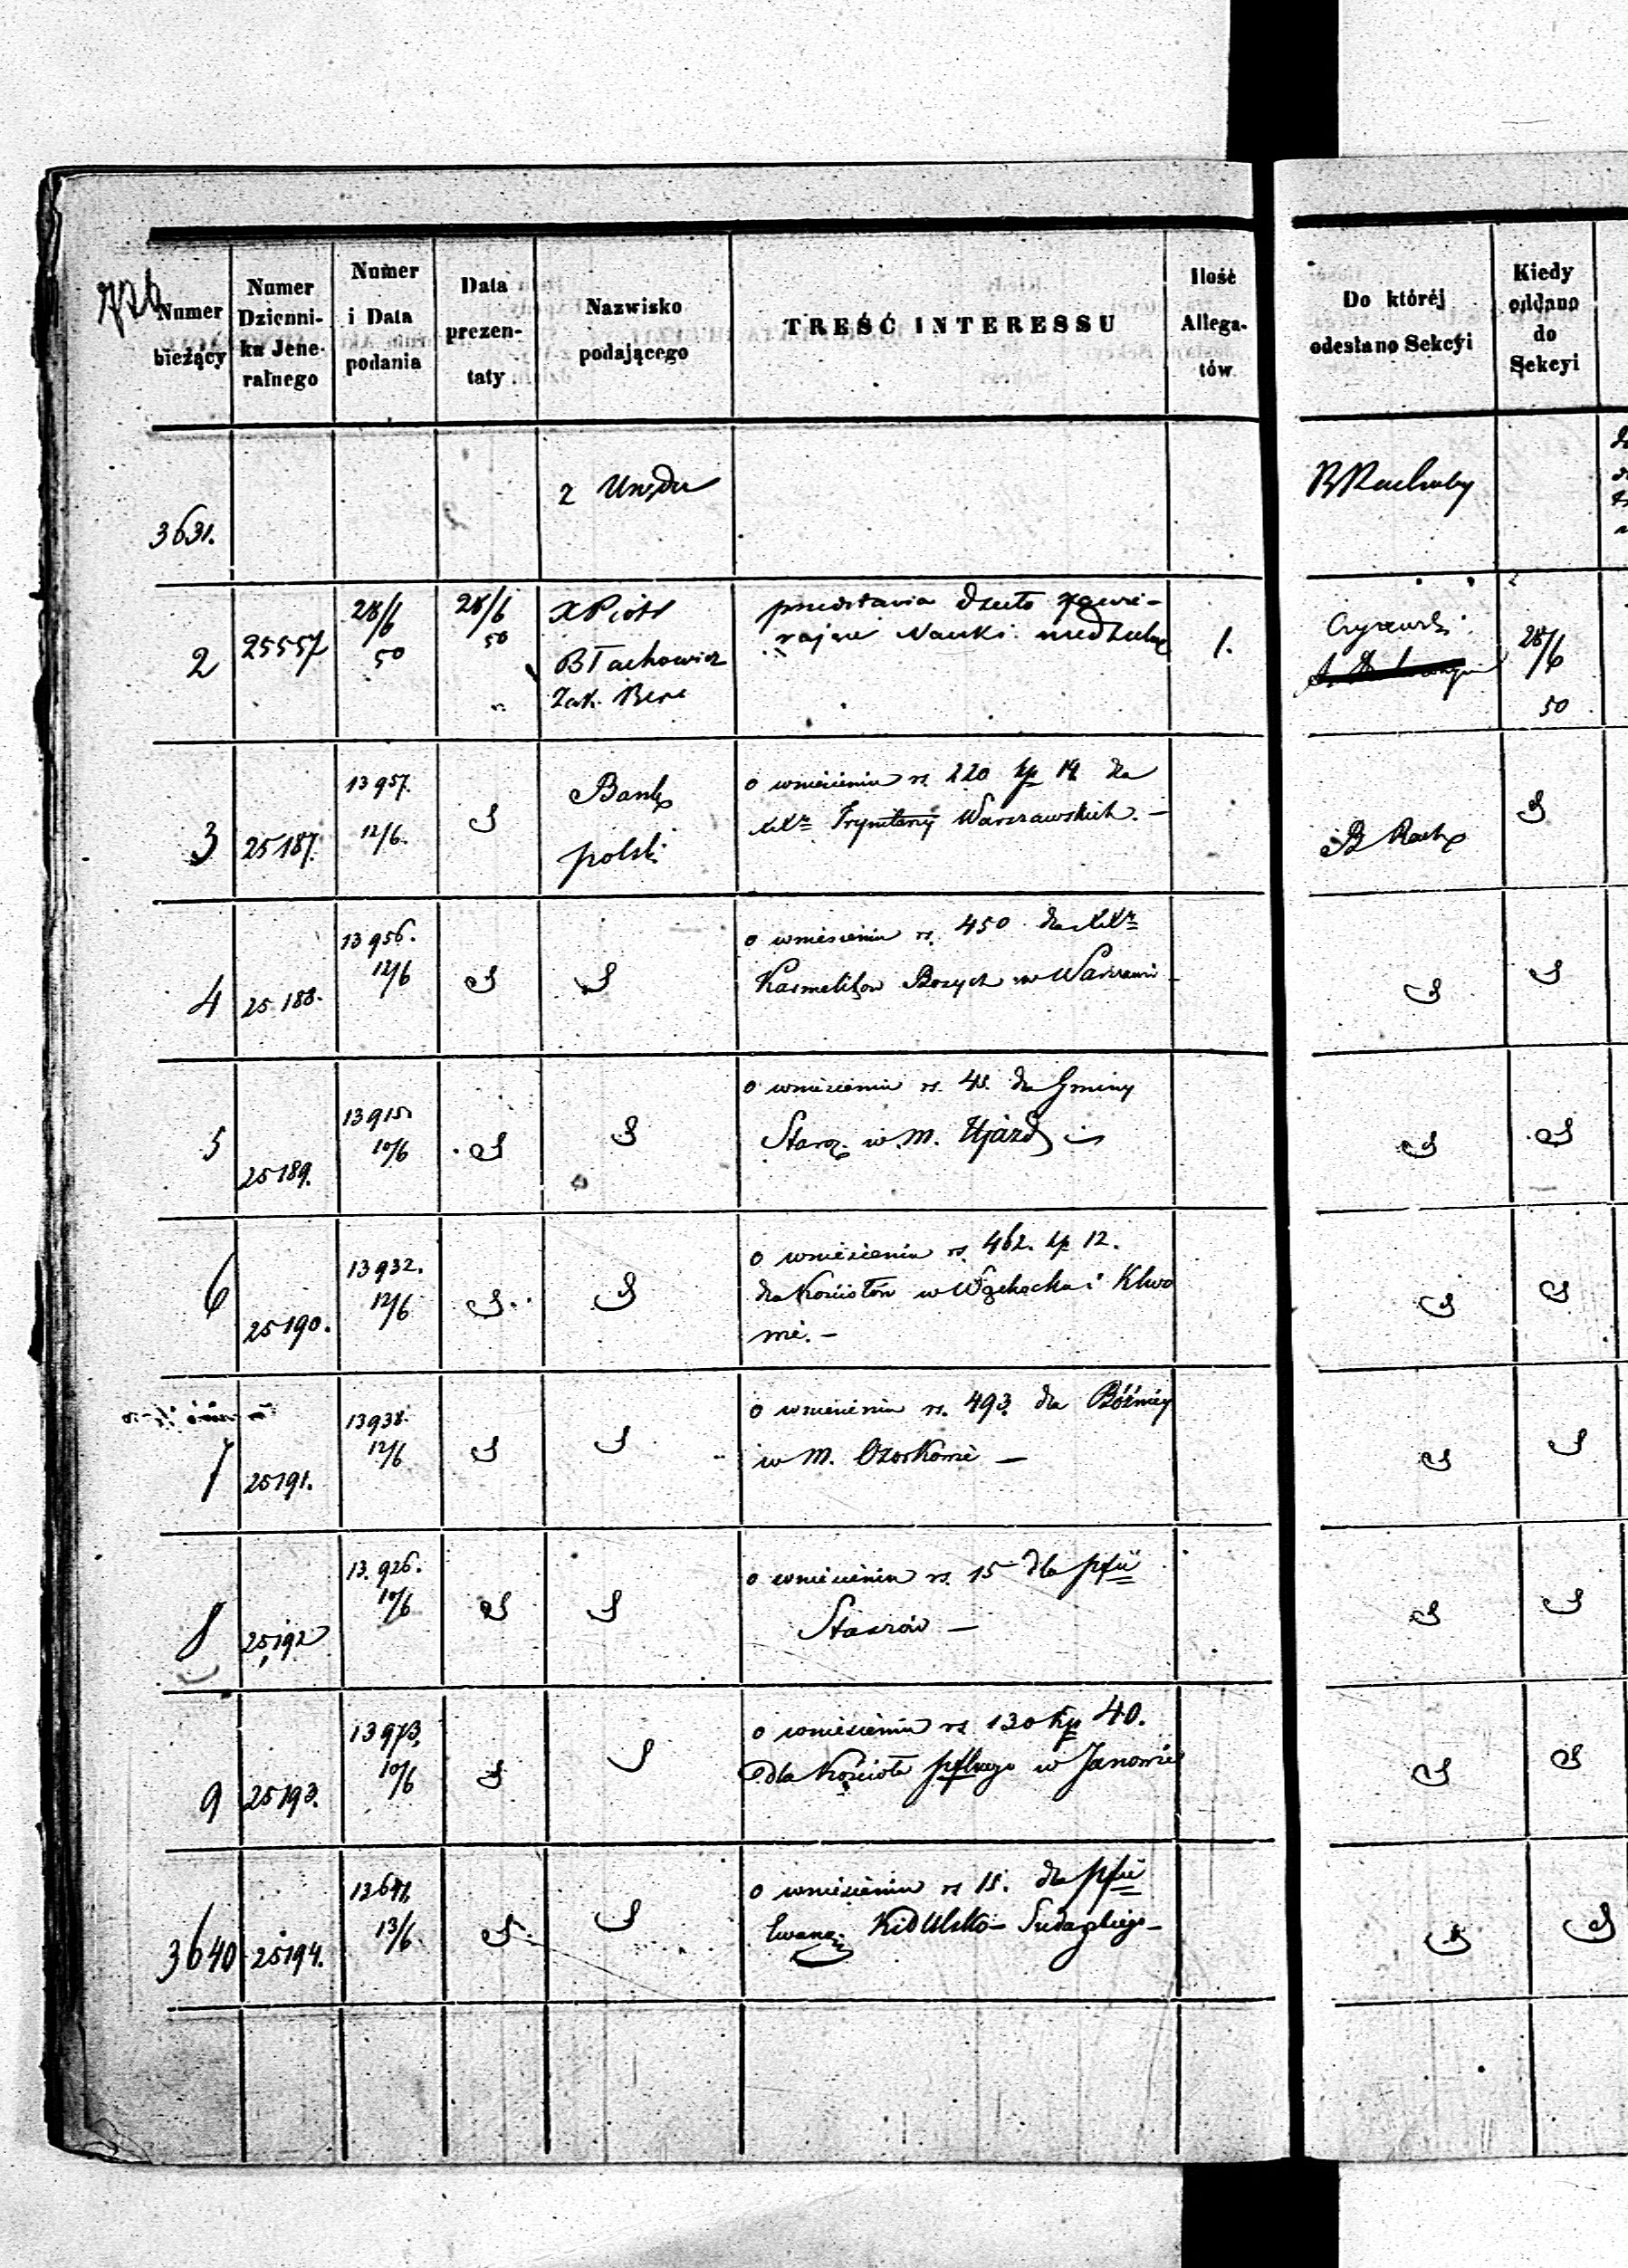 Numer bieżący
Numer Dzienni- ka Jene- ralnego
Numer i Data podania
Data prezen- taty
Nazwisko podającego
TREŚĆ INTERESSU
Ilość Allega- tów
Do któréj odesłano Sekcyi
Kiedy oddano do Sekcyi
3631.
z Urzędu
2
25557
28/6
50
28/6
50
X Piotr
Błachowicz
Zak. Bern
przedstawia dzieło zawie-
rające Nauki niedzielne
1.
28/6
50
3
25187.
13957.
12/6.
S
Bank
polski
o wniesieniu rs. 220 kp 14 dla
XXr Trynitarzy Warszawskich. —
B Rach
S
4
25.188.
13956.
12/6
S
S
o wniesieniu rs. 450 dla XXr
Karmelitów Bosych w Warszawie
S
S
5
25189.
13915
10/6
S
S
o wniesieniu rs. 45. dla Gminy
Staroz. w m. Ujazd
S
S
6
25190.
13932.
12/6
S
S
o wniesieniu rs. 462. kp 12.
dla Kościołów w Wąchocku i Klwo
wie. —
S
S
7
25191.
13938.
12/6
S
S
o wniesieniu rs. 493. dla Bóźnicy
w m. Ozorkowie —
S
S
8
25192
13.926.
10/6
S
S
o wniesieniu rs. 15 dla pfii
Staszów —
S
S
9
25193.
13973.
10/6
S
S
o wniesieniu rs 130 kp 40.
dla Kościoła pflnego w Janowie
S
S
3640
25194.
13/6.
S
S
o wniesieniu rs 15. dla pfii
Ewang.
S
S